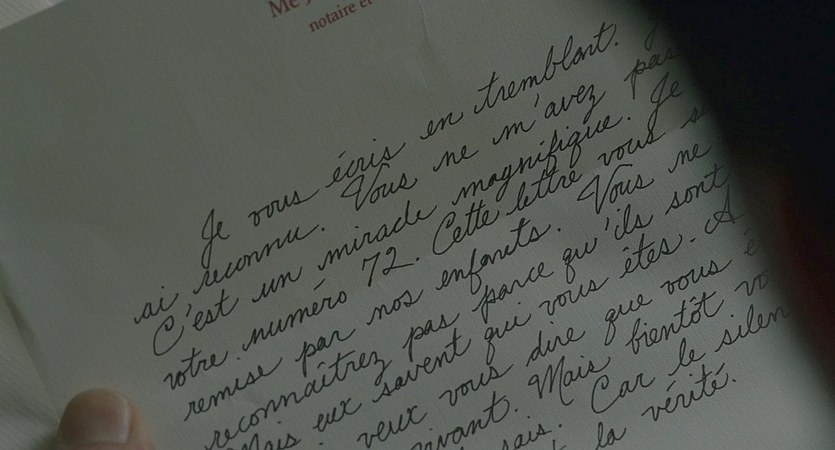 Me
notaire et
Je vous écris en tremblant.
ai reconnu. Vous ne m'avez pas
C'est un miracle magnifique. Je
votre numéro 72. Cette lettre vous
remise par nos enfants. Vous ne
reconnaîtrez pas parce qu'ils sont
Mais eux savent qui vous êtes. A
veux vous dire que vous
vivant. Mais bientôt
sais. Car le silen
la vérité.